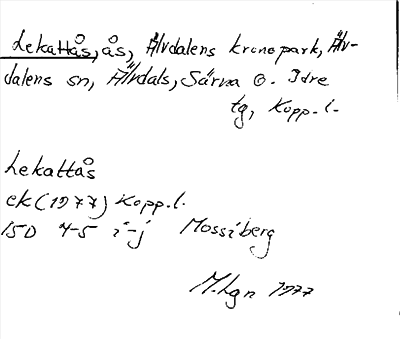 Lekattås, ås, Älvdalens kronopark, Älv-
dalens sn, Älvdals, Särna o. Idre
tg, Kopp. l.
Lekattås
ek (1977) Kopp. l.
15D 4-5 i-j Mossiberg
M. Lgn 1977